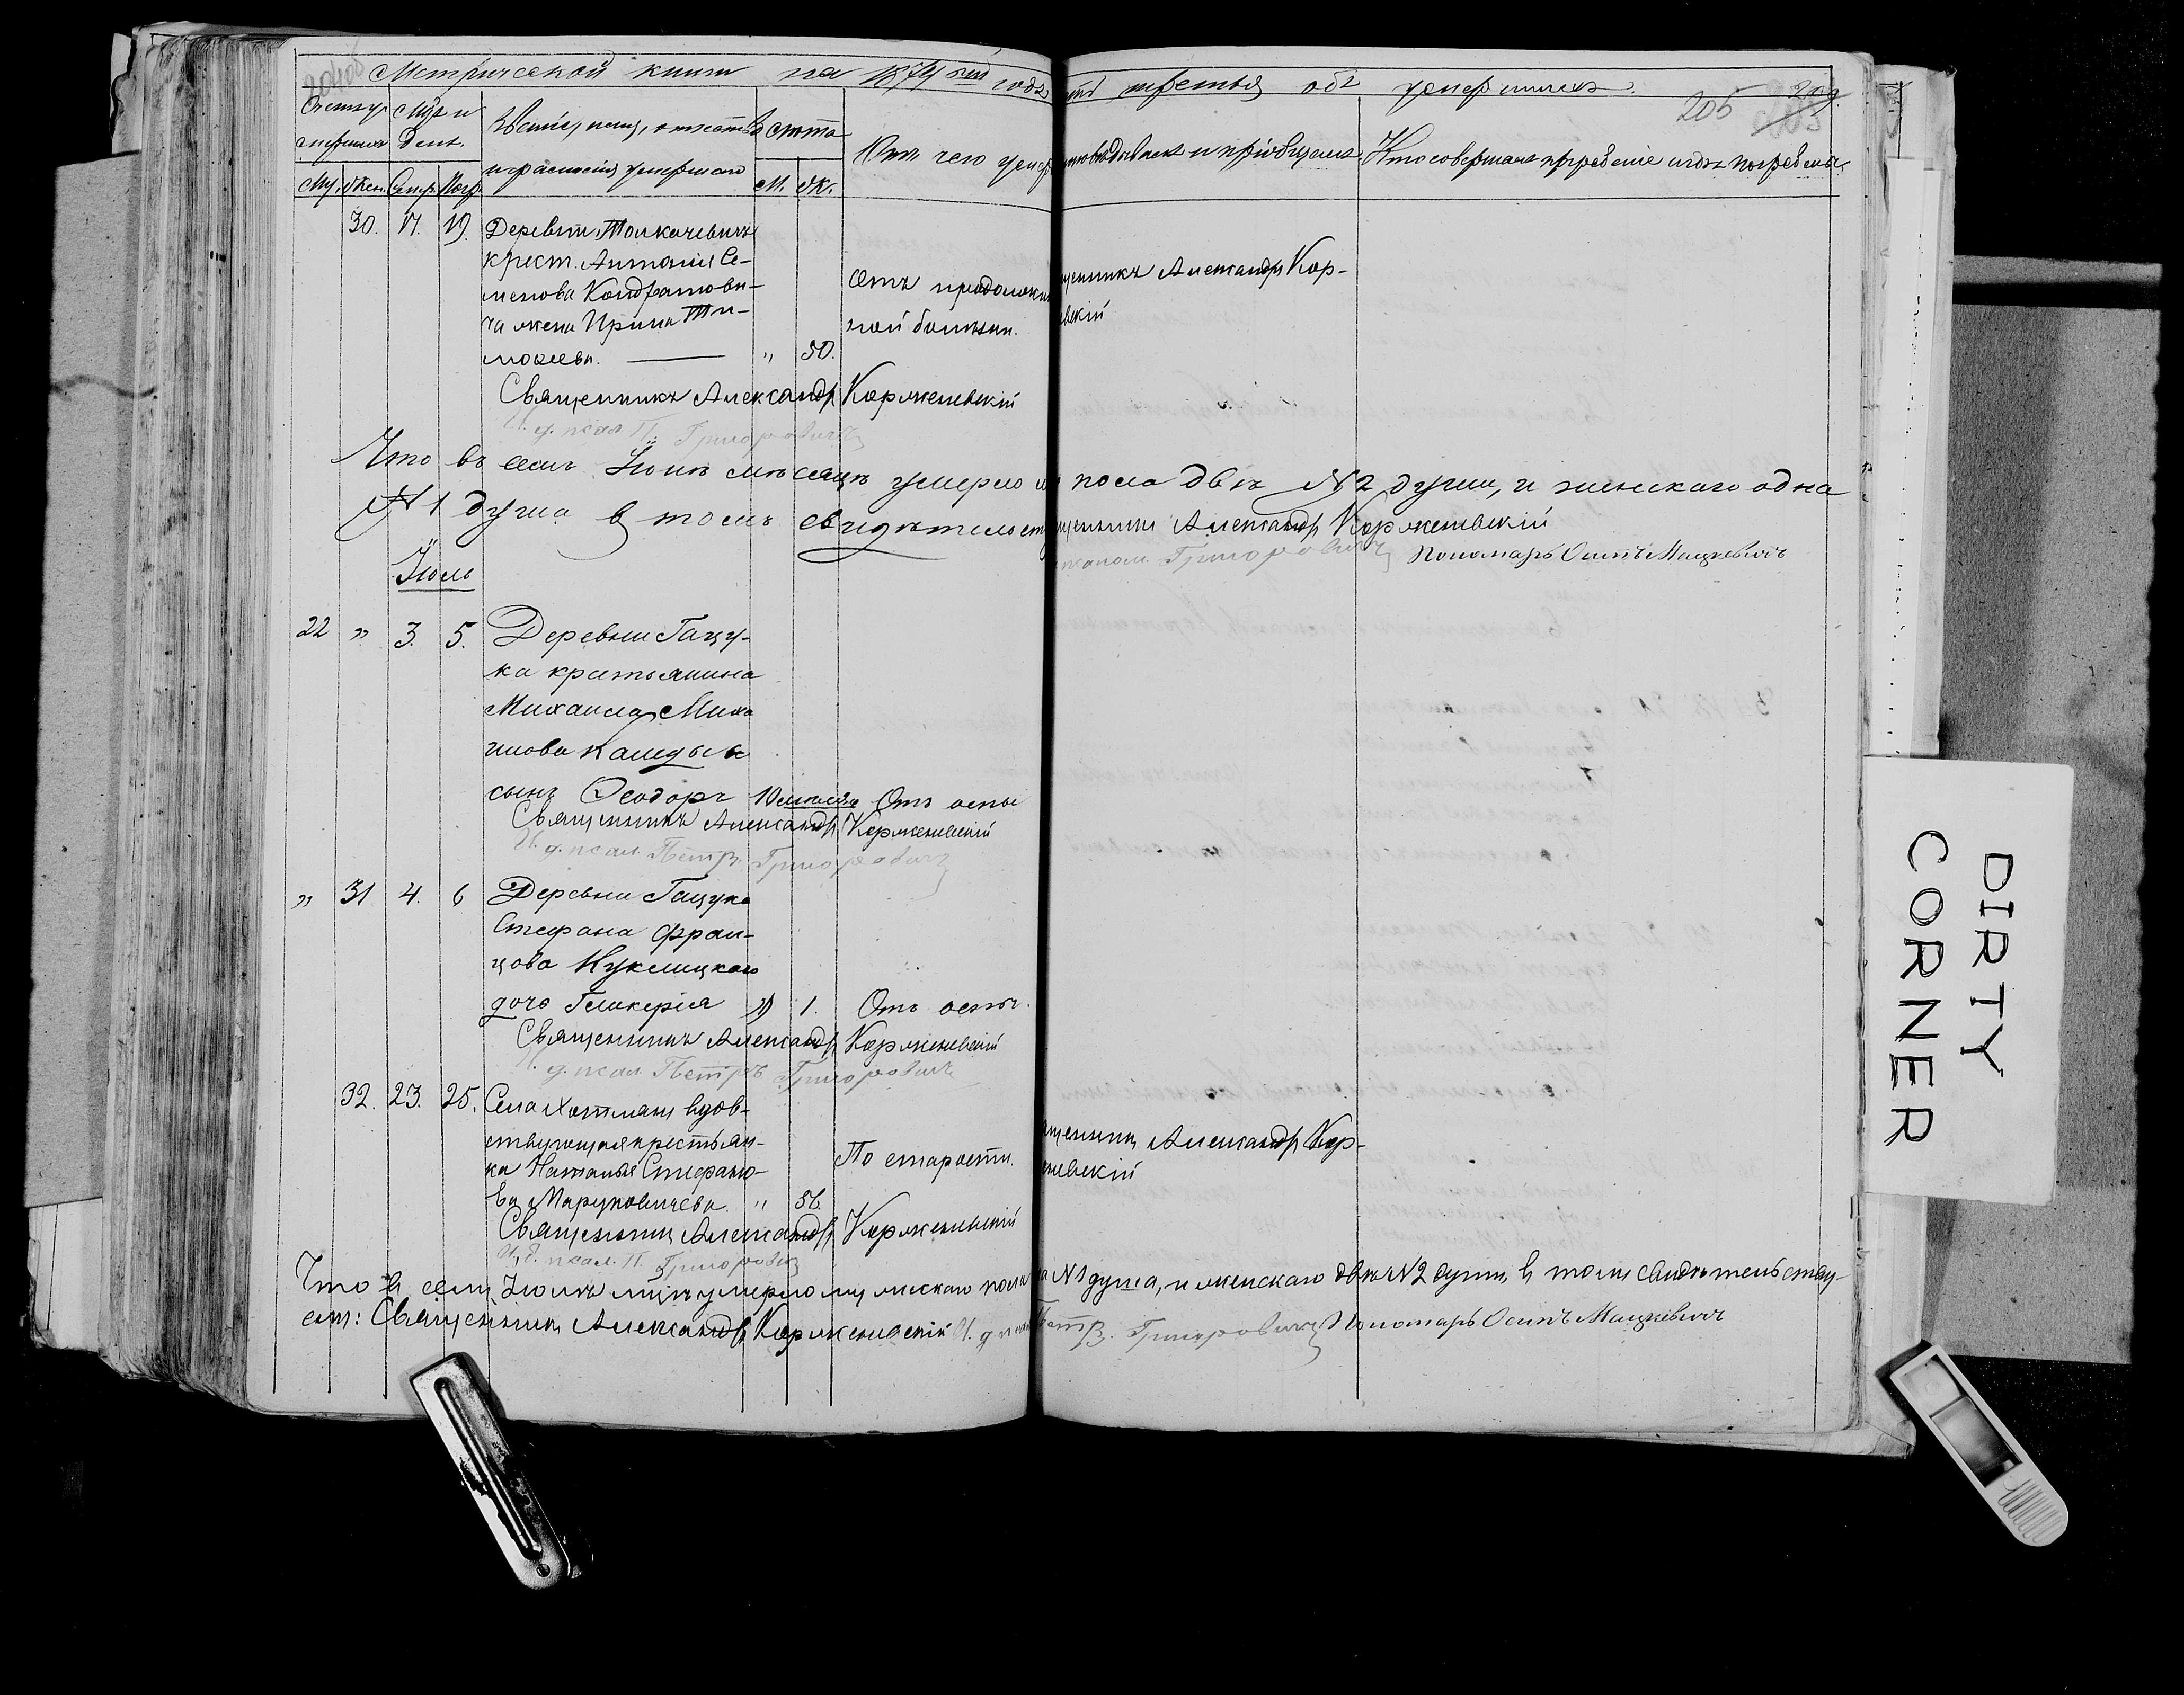 Метрической книги на 1874 годъ третья объ умершихъ.
205
Счетъ умершихъ Мѣс. и День. Званіе, имя, отчество и фамилія умершаго Лѣта От чего умеръ исповѣдывалъ и пріобщалъ. Кто совершалъ погребеніе и гдѣ погребены.
Му. Жен. Смер. Погр. М. Ж.
30. 17. 19. Деревни Толкачевичъ
крест. Антонія Се-
менова Кондратови-
ча жена Ирина Ти-
моѳеева. " 50.
Отъ продолжи
ной болѣзни.
щенникъ Александръ Кор-
евскій
Священникъ Александръ Корженевскій
И. д. псал. П. Григоровичъ
Что въ семъ Іюнѣ мѣсяцѣ умерло м пола двѣ №2 души, и женскаго одна
№1 душа в томъ свидѣтельст щенникъ Александръ Корженевскій
Григоровичъ Пономарь Осипъ Мацкевичъ
Іюль
22 " 3. 5. Деревни Гацу-
ка крестьянина
Михаила Миха
илова
сынъ Ѳеодоръ 10 мѣсяцъ Отъ оспы
Священникъ Александръ Корженевскій
И. д. псал. Петръ Григоровичъ
" 31 4. 6 Деревни Гацука
Стефана Фран-
цова Куклицкаго
дочь Гликерія " 1. Отъ оспы.
Священникъ Александръ Корженевскій
И. д. псал. Петръ Григоровичъ
32. 23. 25. Села Хотлянъ вдов-
ствующая крестьян-
ка Наталья Стефано-
ва Маруковичева. " 56.
По старости.
щенникъ Александръ Кор-
еневскій
Священникъ Александръ Корженевскій
И. д. псал. П. Григоровичъ
Что в семъ Іюлѣ мцѣ умерло мужскаго пола на №1 душа, и женскаго двѣ №2 души, в томъ свидѣтельству-
етъ: Священникъ Александръ Корженевскій И. д. псал Петръ Григоровичъ Пономарь Осипъ Мацкевичъ
DIRTY
CORNER